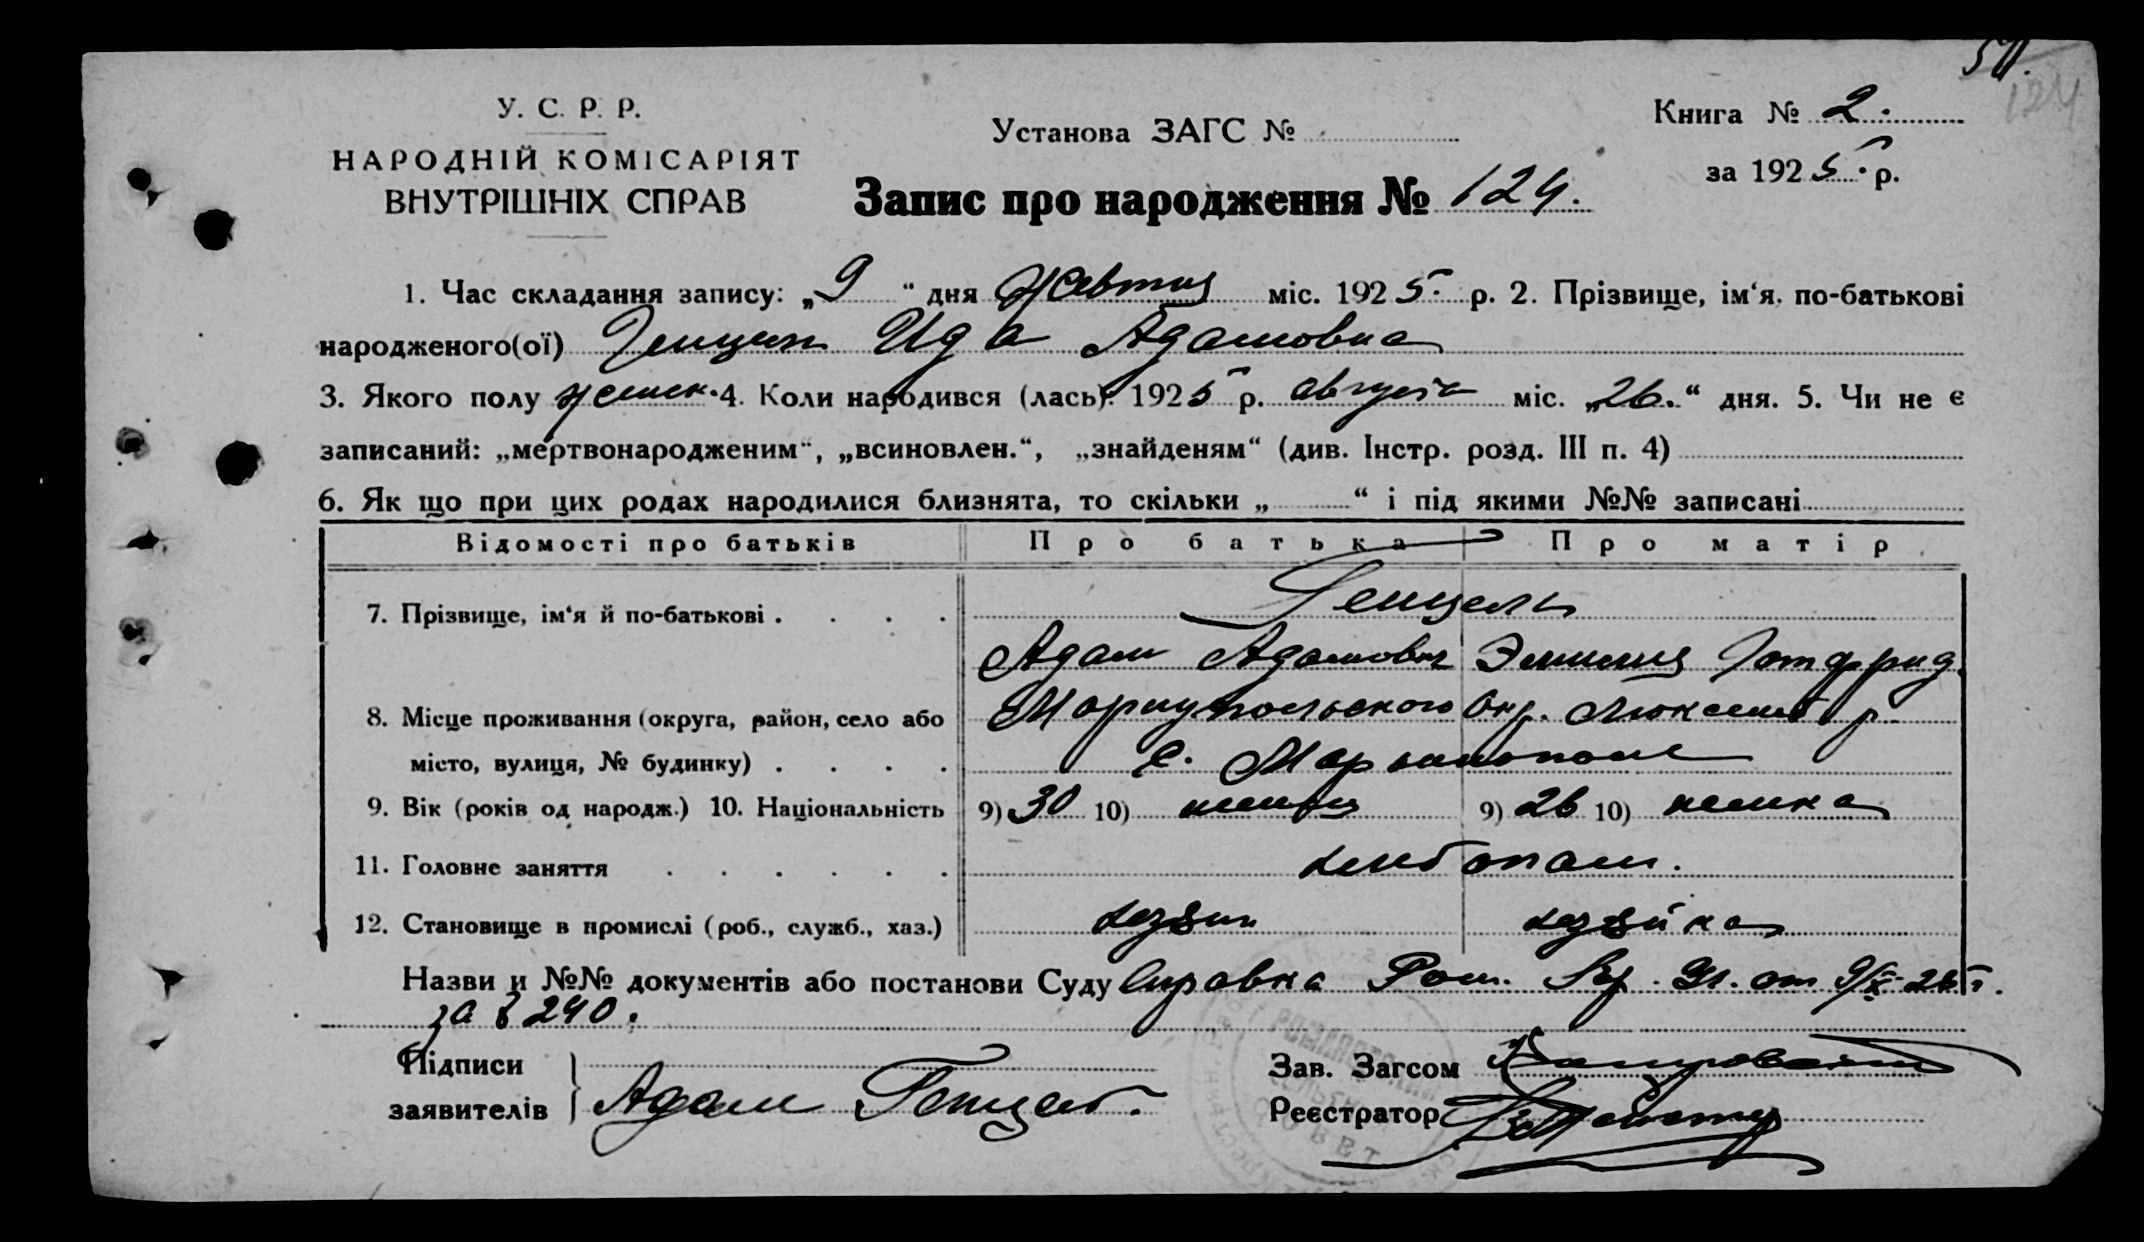 124
У. С. Р. Р.
НАРОДНІЙ КОМІСАРІЯТ
ВНУТРІШНІХ СПРАВ
Установа ЗАГС №
Книга № 2.
за 1925 р.
Запис про народження № 124.
1. Час складання запису: „9“ дня Жовтня міс. 1925 р. 2. Прізвище, ім‘я, по-батькові
народженого(ої) Генцель Ида Адамовна
3. Якого полу женск. 4. Коли народився (лась): 1925 р. август міс. „26.“ дня. 5. Чи не є
записаний: „мертвонародженим“, „всиновлен.“, „знайденям“ (див. Інстр. розд. III п. 4)
6. Як що при цих родах народилися близнята, то скільки „ “ і під якими №№ записані
Відомості про батьків Про батька Про матір
7. Прізвище, ім‘я й по-батькові . . . . Генцель
Адам Адамович Эмилия Готфрид.
8. Місце проживання (округа, район, село або Мариупольского Окр. Люксемб р.
місто, вулиця, № будинку) . . . . с. Марьинополе
9. Вік (років од народж.) 10. Національність 9) 30 10) немец 9) 26 10) немка
11. Головне заняття . . . . . . хлебопаш.
12. Становище в промислі (роб., служб., хаз.) хозяин хозяйка
Назви и №№ документів або постанови Суду Справка от 9/X-25 г.
за № 240.
Підписи
заявителів Адам Генцель.
Зав. Загсом
Реєстратор